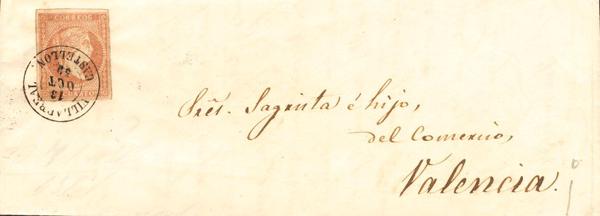 CORREOS
VILLARREAL
13
OCT
59
CASTELLON.
Sres. Sagrista é hijo,
del Comercio,
Valencia.